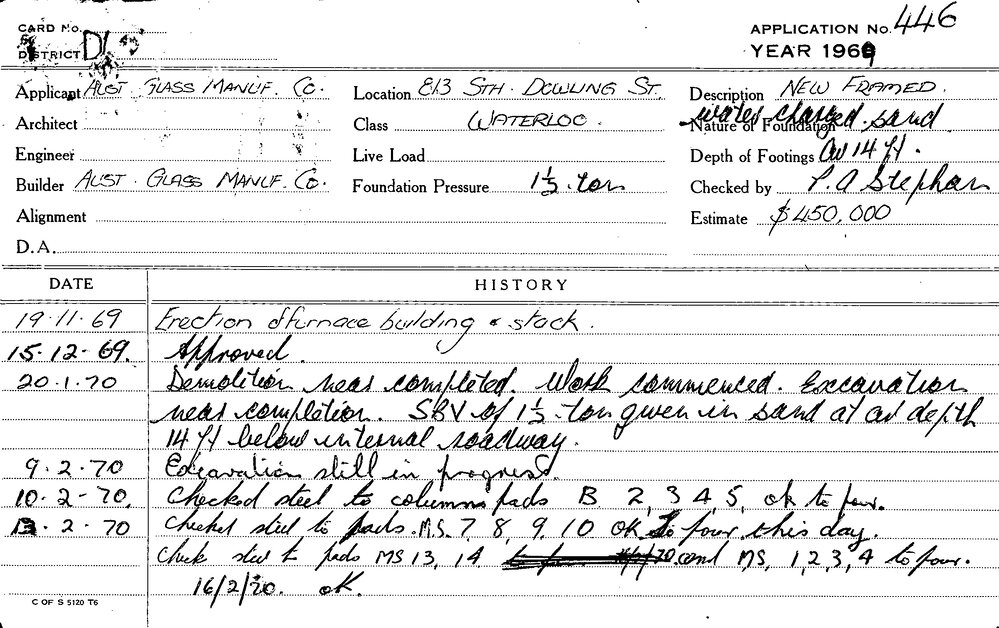 CARD No.
APPLICATION No. 446
DISTRICT D1
YEAR 1969
Applicant AUST. GLASS MANUF. CO. Location 813 STH. DOWLING ST. Description NEW FRAMED.
Architect Class WATERLOO. Nature of Foundation water charged sand
Engineer Live Load Depth of Footings av 14 ft.
Builder AUST. GLASS MANUF. CO. Foundation Pressure 1½ ton Checked by P. A Stephan
Alignment Estimate $450,000
D.A.
DATE HISTORY
19.11.69 Erection of furnace building & stack.
15.12.69. Approved.
20.1.70 Demolition near completed. Work commenced. Excavation
near completion. SBV of 1½ ton given in sand at av depth
14 ft below internal roadway.
9.2.70 Excavation still in progress.
10.2.70. Checked steel to columns pads B 2, 3 4, 5, ok to pour.
13.2.70 Checked steel to pads. M.S. 7, 8, 9, 10 OK to pour this day.
Check steel to pads MS 13, 14 and MS, 1, 2, 3, 4 to pour.
16/2/70. ok.
C OF S 5120 T6